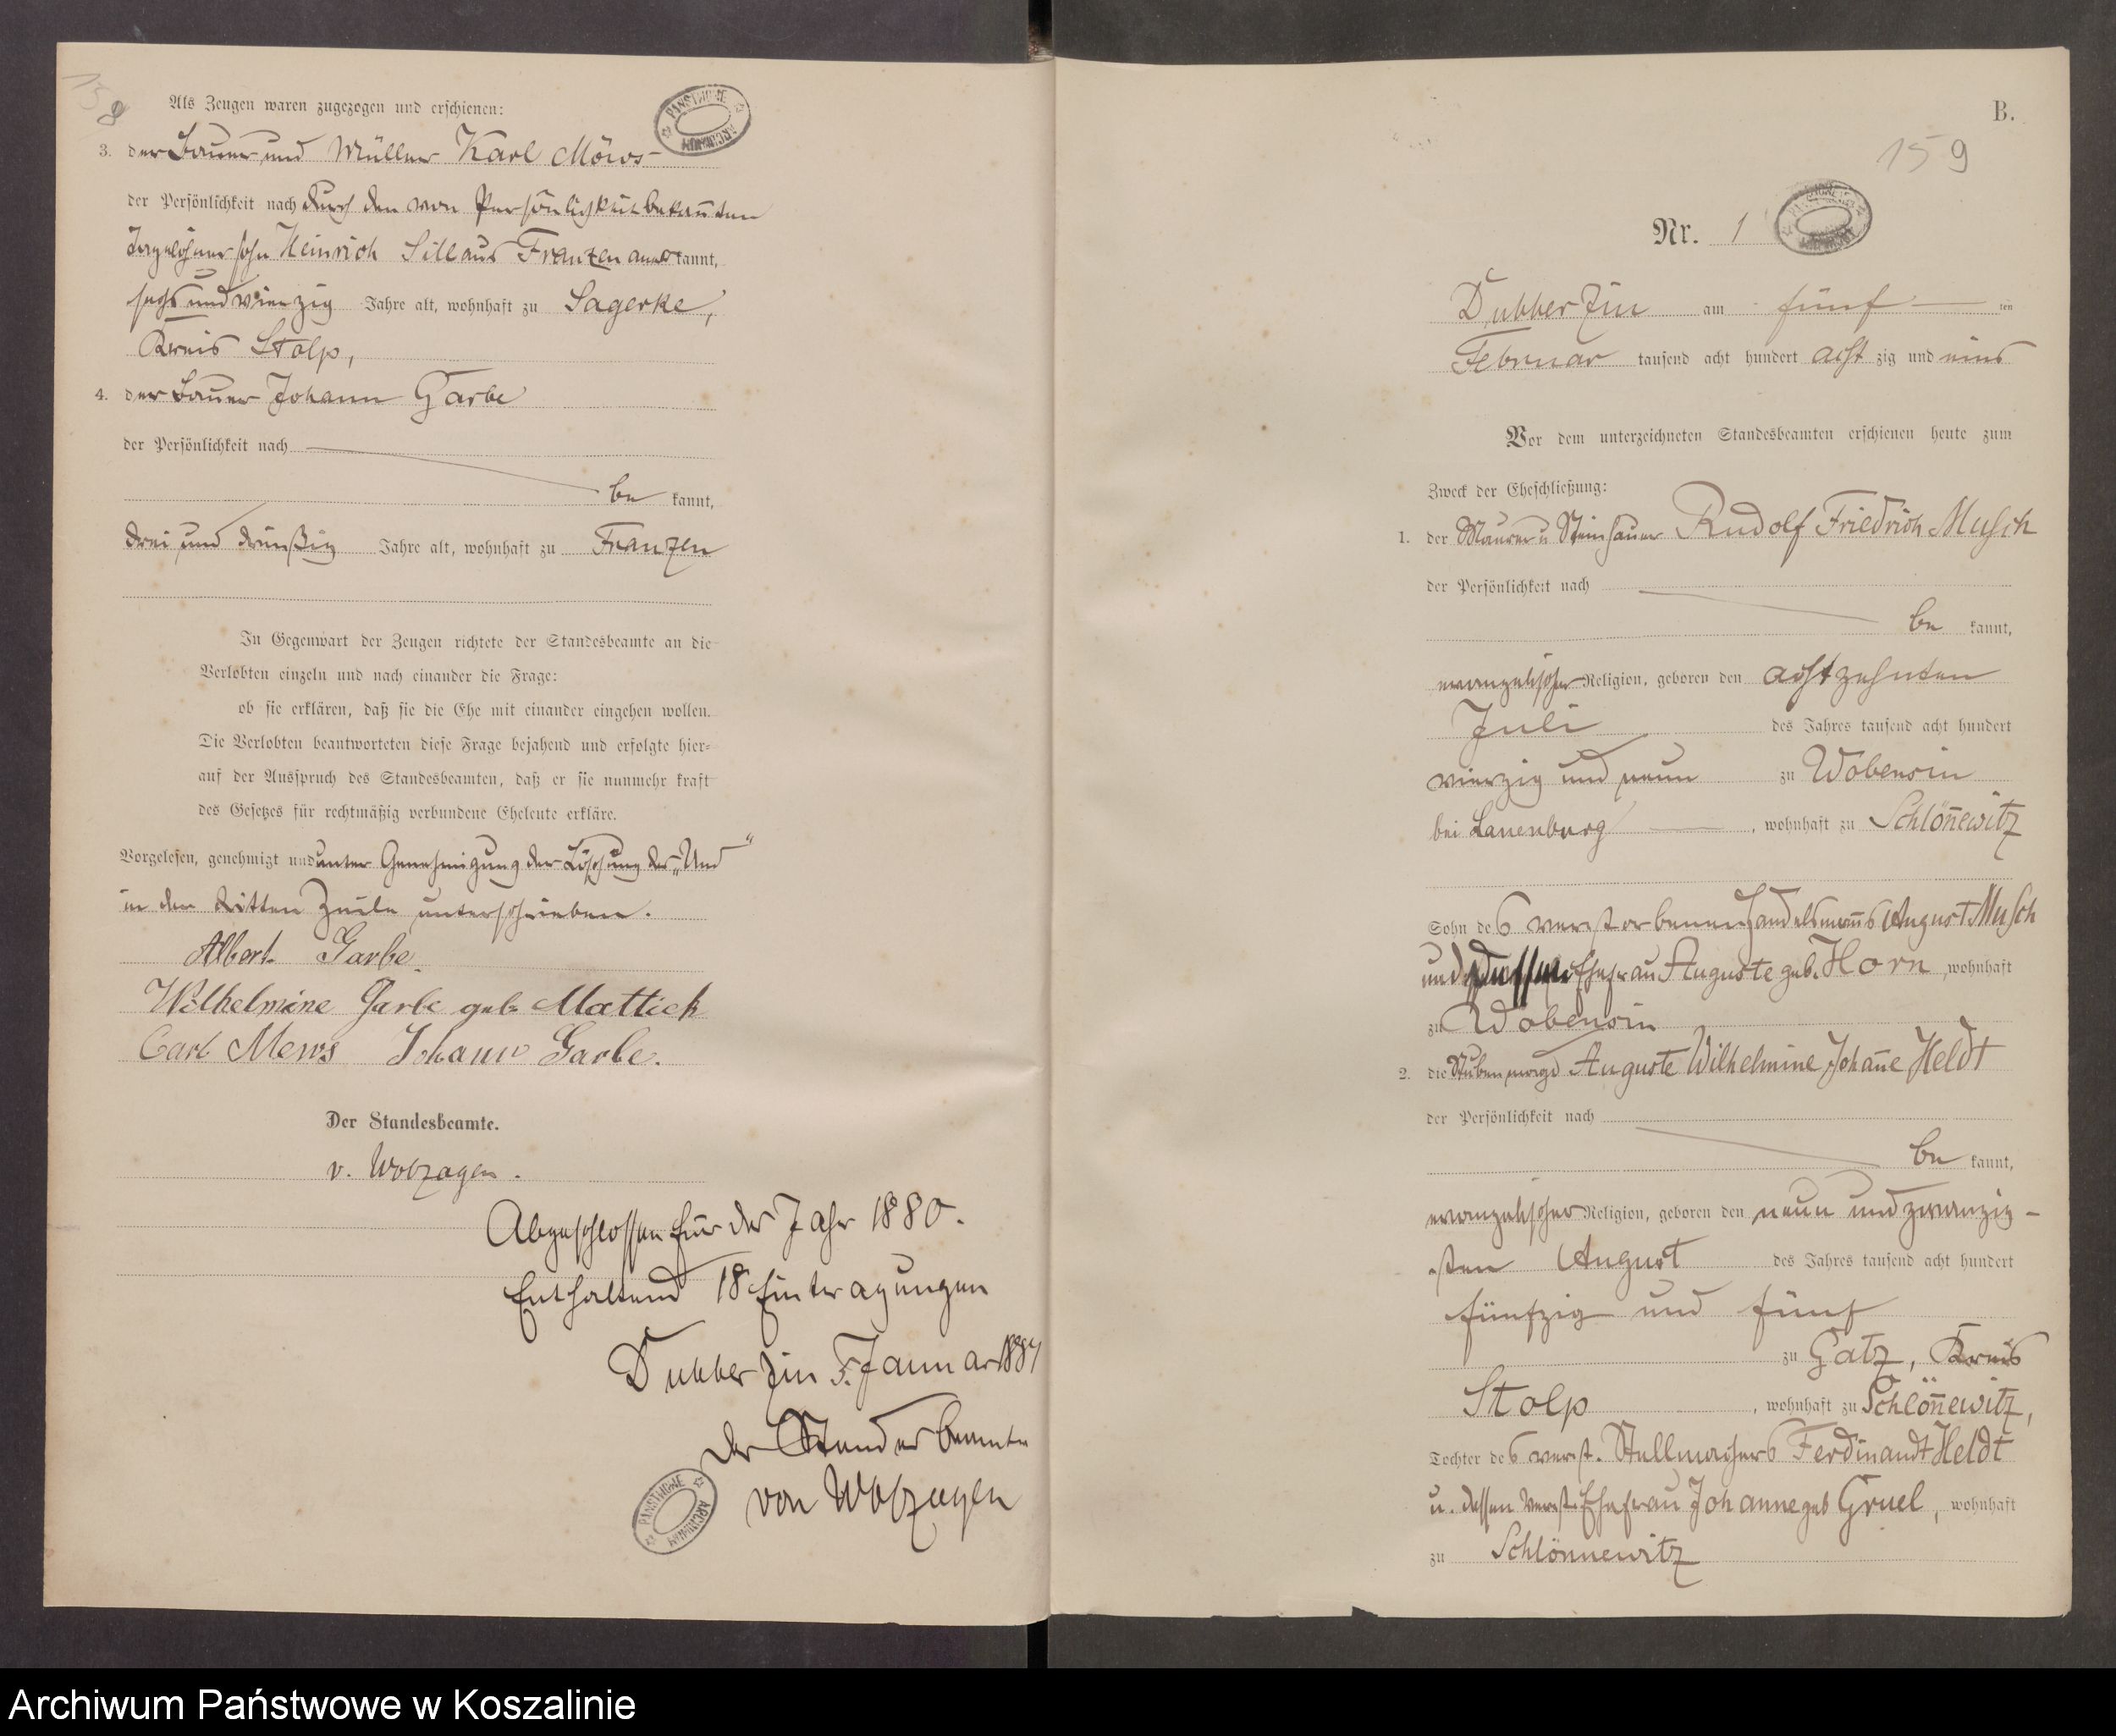 158
Als Zeugen waren zugezogen und erschienen:
PANSTWOWE ARCHIWUM
3. der Bauer und Müller Karl Möws
der Persönlichkeit nach durch den von Persönlichkeit bekannten
Tagelöhnersohn Heinrich Sill aus Franzen anerkannt,
sechs und vierzig Jahre alt, wohnhaft zu Sagerke,
Kreis Stolp,
4. der Bauer Johann Garbe
der Persönlichkeit nach
be kannt,
drei und dreißig Jahre alt, wohnhaft zu Franzen
In Gegenwart der Zeugen richtete der Standesbeamte an die
Verlobten einzeln und nach einander die Frage:
ob sie erklären, daß sie die Ehe mit einander eingehen wollen.
Die Verlobten beantworteten diese Frage bejahend und erfolgte hier-
auf der Ausspruch des Standesbeamten, daß er sie nunmehr kraft
des Gesetzes für rechtmäßig verbundene Eheleute erkläre.
Vorgelesen, genehmigt und unter Genehmigung der Löschung des „Und“
in der dritten Zeile unterschrieben.
Albert Garbe
Wilhelmine Garbe geb. Mattick
Carl Mews Johann Garbe.
Der Standesbeamte.
v. Wobzagen.
Abgeschlossen für das Jahr 1880.
Enthaltend 18 Eintragungen
Dubberzin 5. Januar 1881
Der Standesbeamte
von Wobzagen
PANSTWOWE ARCHIWUM
B.
159
Nr. 1
Dubberzin am fünf ten
Februar tausend acht hundert acht zig und eins
Vor dem unterzeichneten Standesbeamten erschienen heute zum
Zweck der Eheschließung:
1. der Maurer u Steinhauer Rudolf Friedrich Musch
der Persönlichkeit nach
be kannt,
evangelischer Religion, geboren den achtzehnten
Juli des Jahres tausend acht hundert
vierzig und neun zu Wobensin
bei Lauenburg, wohnhaft zu Schlönn̄ewitz
Sohn des verstorbenen Handelsmanns August Musch
und dessen Ehefrau Auguste geb. Horn, wohnhaft
zu Wobensin
2. die Stubenmagd Auguste Wilhelmine Johan̄e Heldt
der Persönlichkeit nach
be kannt,
evangelischer Religion, geboren den neun und zwanzig-
sten August des Jahres tausend acht hundert
fünfzig und fünf
zu Gatz, Kreis
Stolp, wohnhaft zu Schlön̄ewitz,
Tochter des verst. Stellmachers Ferdinandt Heldt
u. dessen verst. Ehefrau Johanne geb Gruel, wohnhaft
zu Schlönnewitz
Archiwum Państwowe w Koszalinie